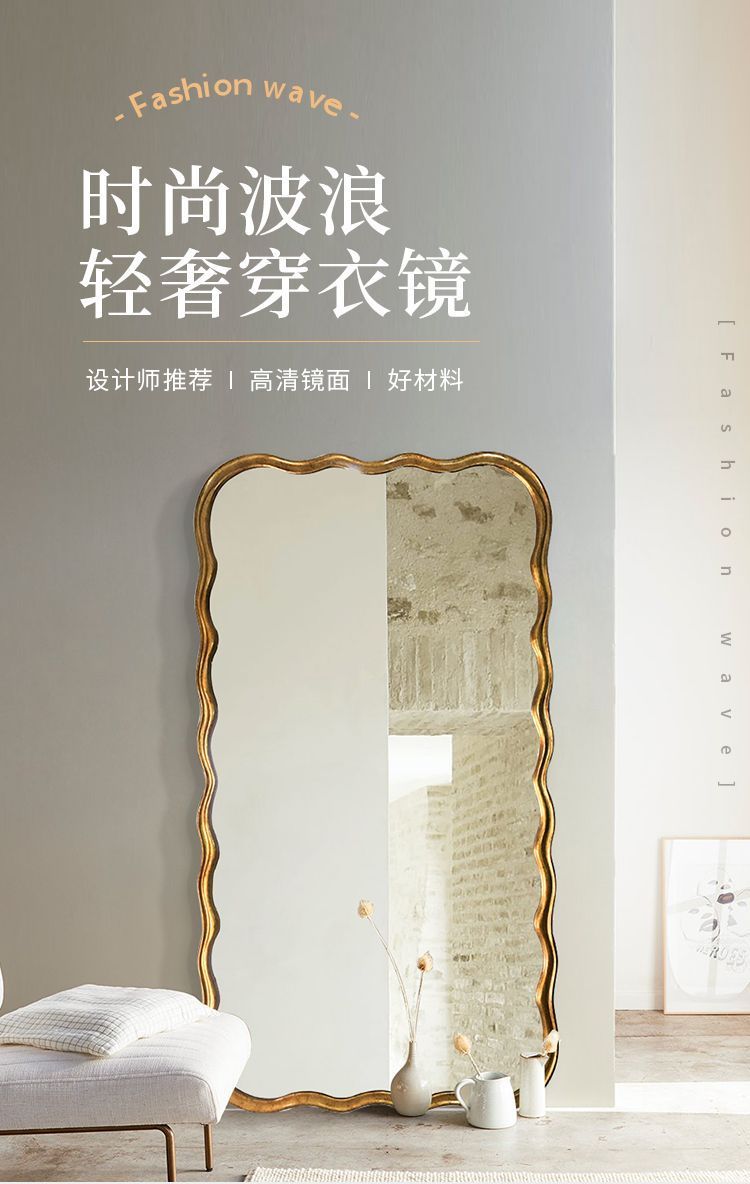 - Fashion wave -
时尚波浪
轻奢穿衣镜
设计师推荐 | 高清镜面 | 好材料
[ Fashion wave ]